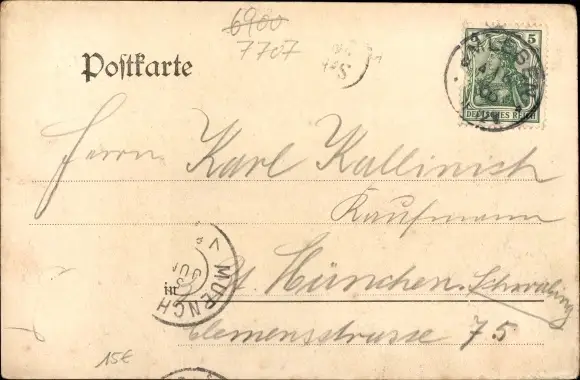 6900
7707
Postkarte
5
DEUTSCHES REICH
Herrn Karl Kallinich
Kaufmann
in München-Schwabing
Clemensstrasse 75
MUENCH
V
JUN
15€